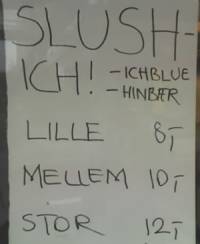 SLUSH-
ICH! -ICHBLUE
-HINBÆR
LILLE 8,-
MELLEM 10,-
STOR 12,-